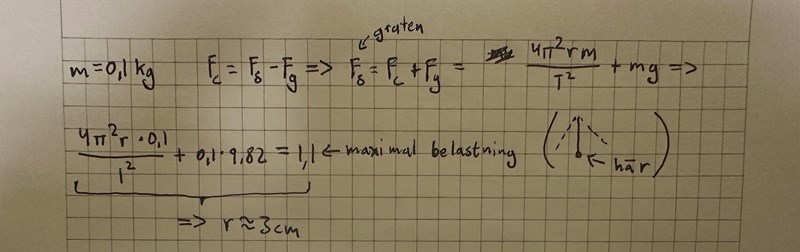 graten
m=0,1 kg F_c = F_s - F_g => F_s = F_c + F_g = 4π²rm / T² + mg =>
4π²r · 0,1 / 1² + 0,1 · 9,82 = 1,1 ← maximal belastning ( ← här )
=> r ≈ 3cm